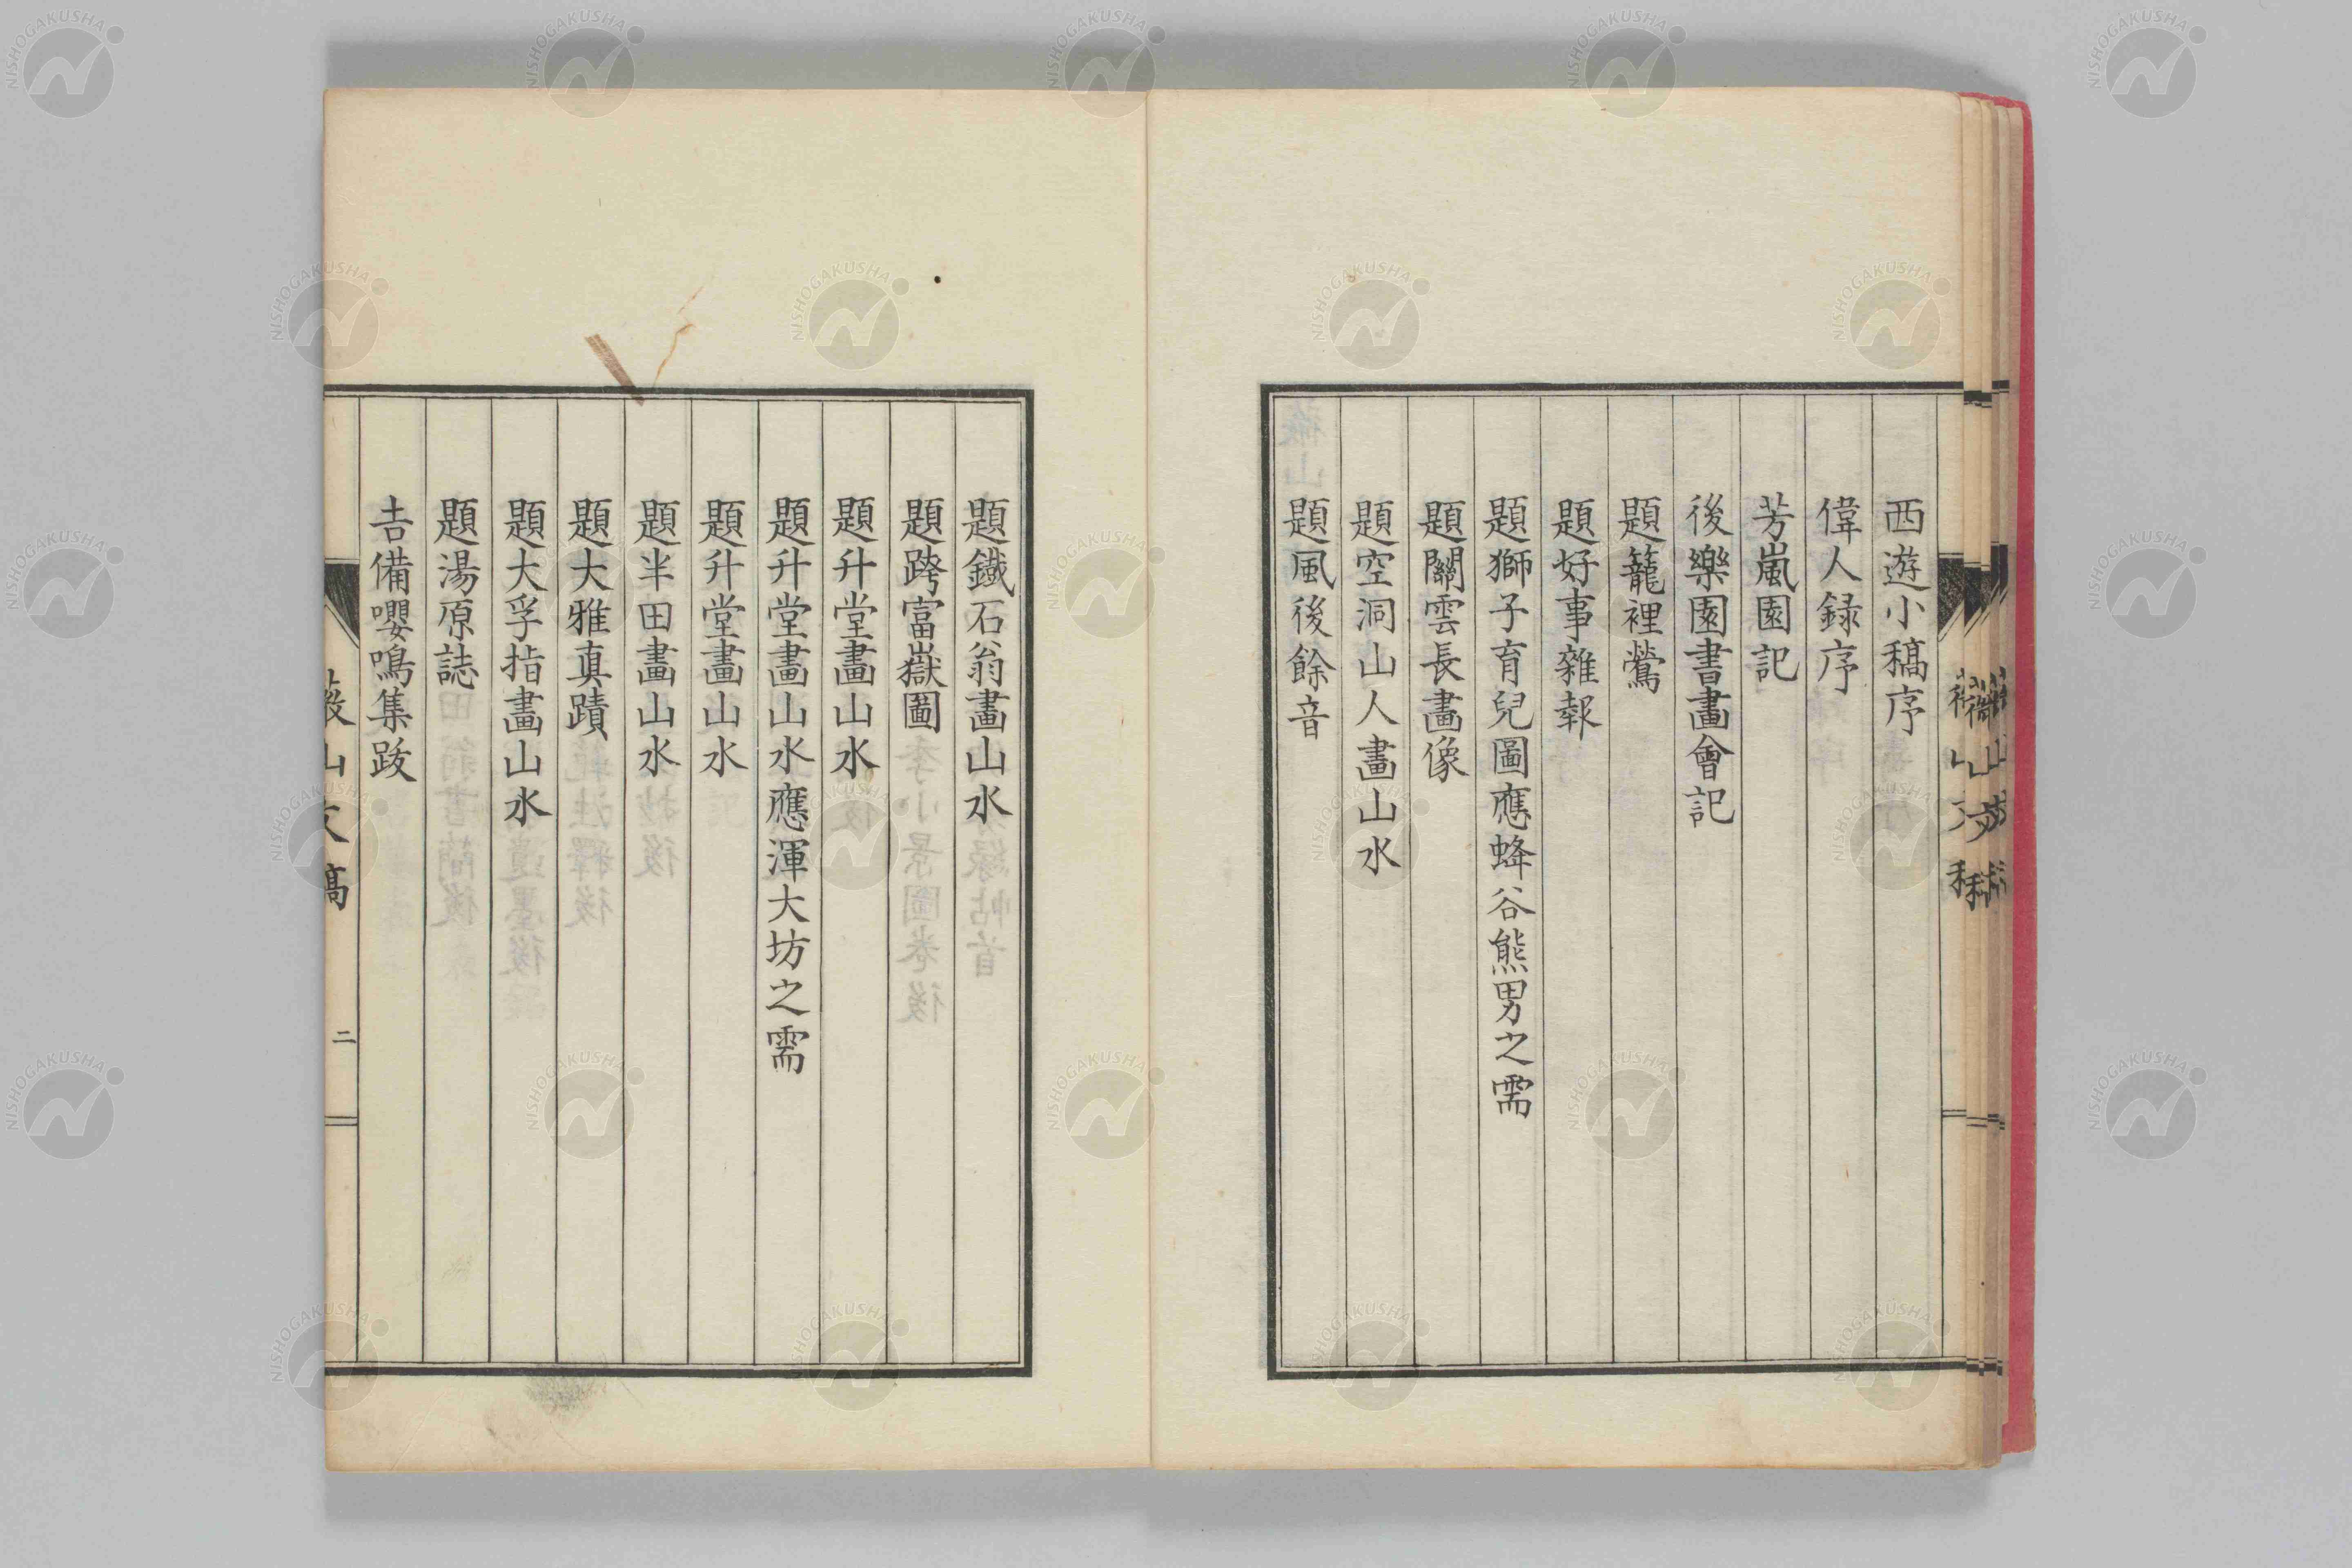 西遊小稿序
偉人録序
芳嵐園記
後樂園書畫會記
題籠裡鶯
題好事雜報
題獅子育兒圖應蜂谷熊男之需
題關雲長畫像
題空洞山人畫山水
題風後餘音
題鐵石翁畫山水
題跨富嶽圖
題升堂畫山水
題升堂畫山水應渾大坊之需
題升堂畫山水
題半田畫山水
題大雅真蹟
題大孚指畫山水
題湯原誌
吉備嚶鳴集跋
山文稿
二
NISHOGAKUSHA